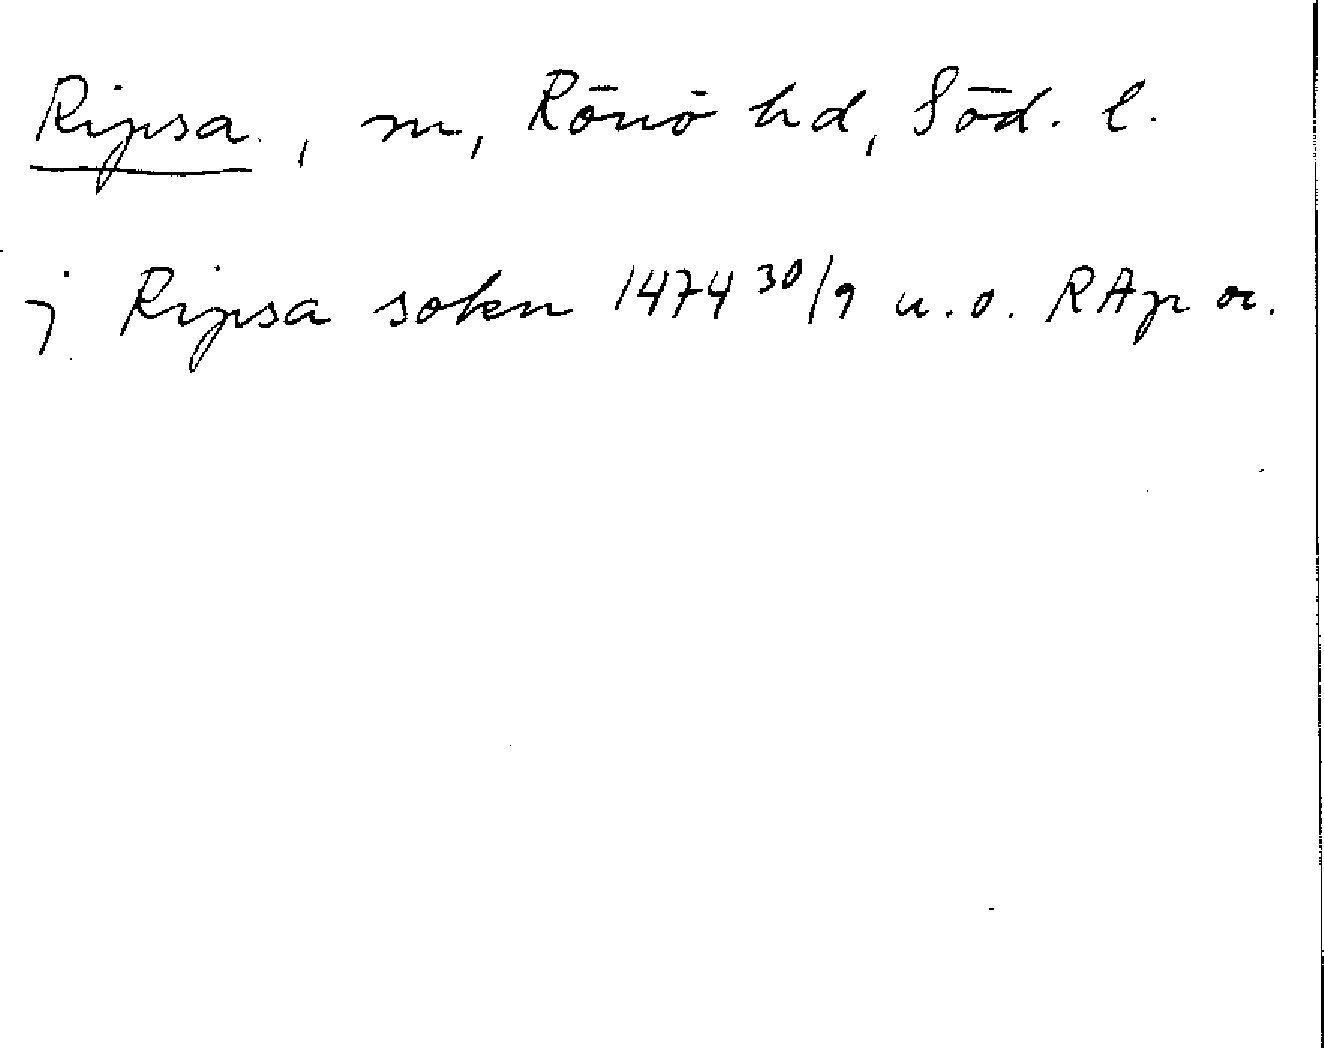 Ripsa, sn, Rönö hd, Söd. l.
j Ripsa sokn 1474 30/9 u.o. RAp or.